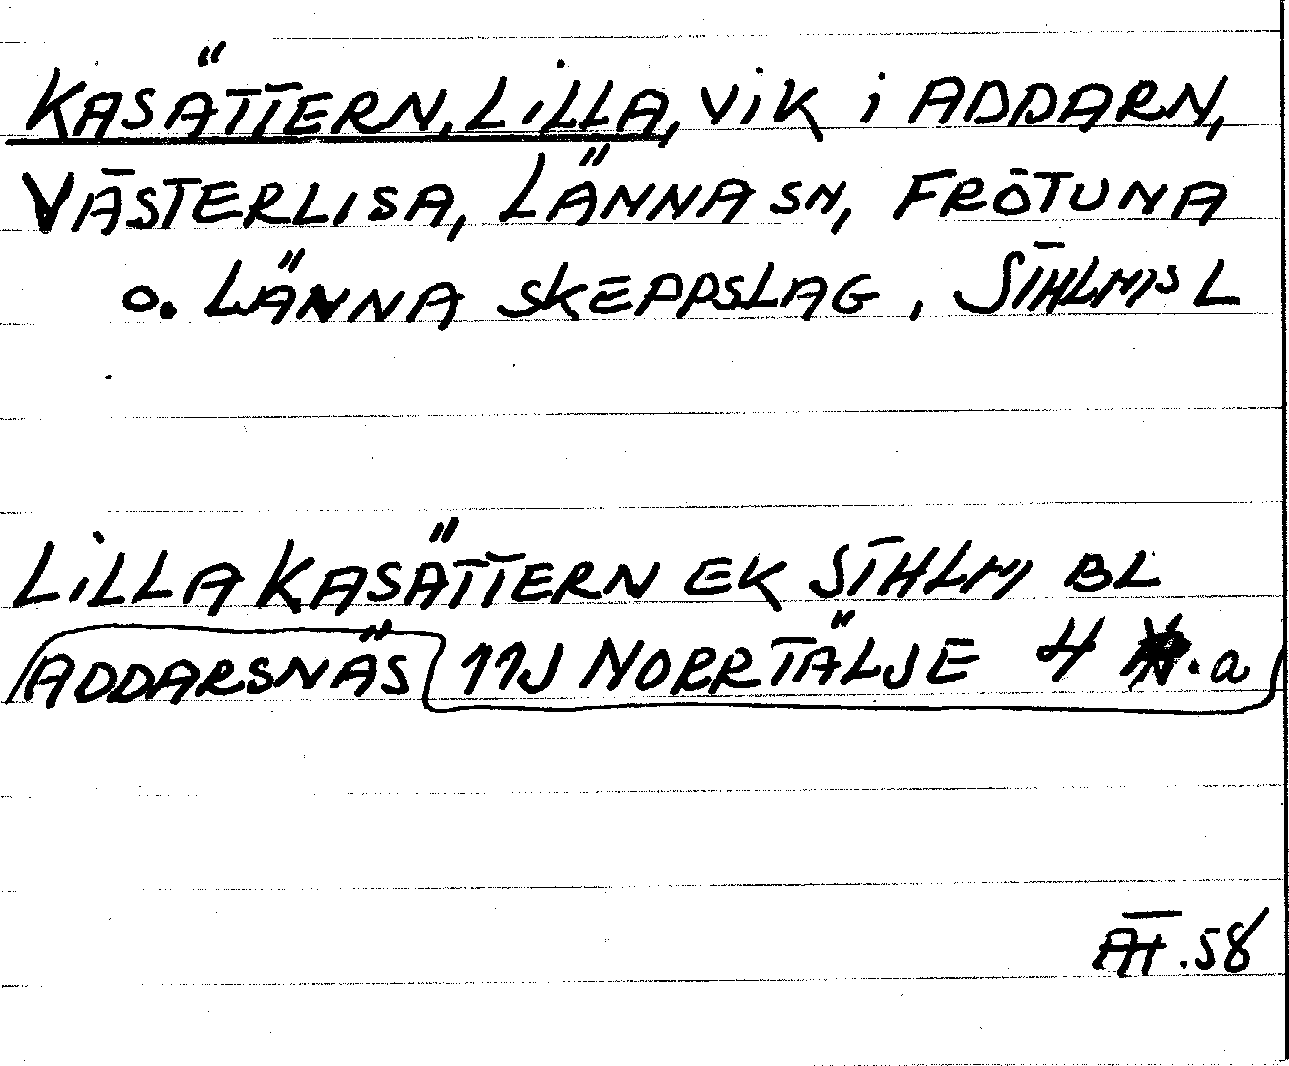 KASÄTTERN, LILLA, VIK i ADDARN,
VÄSTERLISA, LÄNNA SN, FRÖTUNA
o. LÄNNA SKEPPSLAG, STHLMS L
LILLA KASÄTTERN EK STHLM BL
ADDARSNÄS 11J NORRTÄLJE 4 .a
AT.58